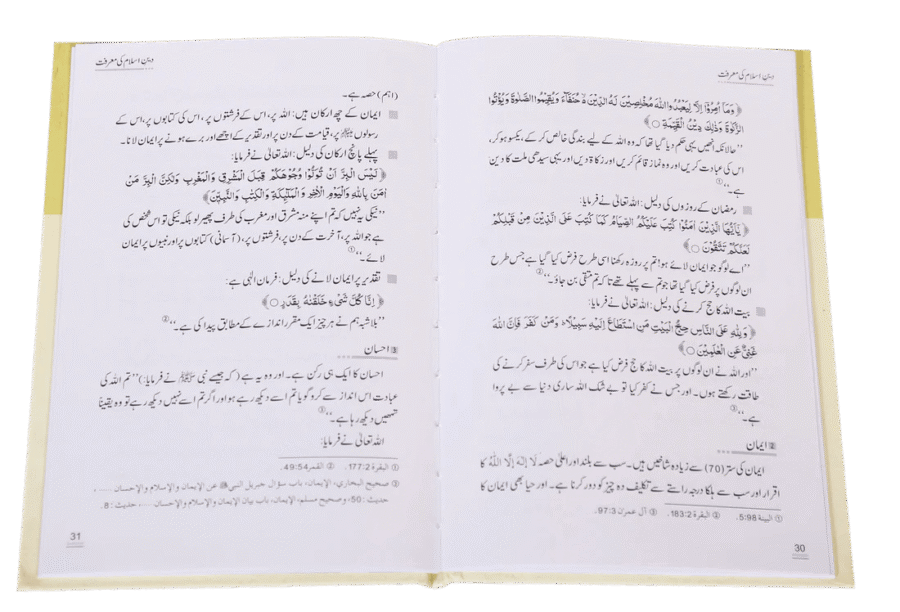 دینِ اسلام کی معرفت
﴿ وَمَا أُمِرُوٓا إِلَّا لِيَعْبُدُوا اللَّهَ مُخْلِصِينَ لَهُ الدِّينَ ۙ حُنَفَاءَ وَيُقِيمُوا الصَّلَوٰةَ وَيُؤْتُوا
الزَّكَوٰةَ وَذَٰلِكَ دِينُ الْقَيِّمَةِ ○ ﴾
’’حالانکہ انھیں یہی حکم دیا گیا تھا کہ وہ اللہ کے لیے بندگی خالص کر کے، یکسو ہو کر،
اس کی عبادت کریں اور وہ نماز قائم کریں اور زکاۃ دیں اور یہی سیدھی ملت کا دین
ہے۔‘‘①
رمضان کے روزوں کی دلیل: اللہ تعالیٰ نے فرمایا:
﴿ يَٰٓأَيُّهَا الَّذِينَ آمَنُوا كُتِبَ عَلَيْكُمُ الصِّيَامُ كَمَا كُتِبَ عَلَى الَّذِينَ مِنْ قَبْلِكُمْ
لَعَلَّكُمْ تَتَّقُونَ ○ ﴾
’’اے لوگو جو ایمان لائے ہو! تم پر روزہ رکھنا اسی طرح فرض کیا گیا ہے جس طرح
ان لوگوں پر فرض کیا گیا تھا جو تم سے پہلے تھے تاکہ تم متقی بن جاؤ۔‘‘②
بیت اللہ کا حج کرنے کی دلیل: اللہ تعالیٰ نے فرمایا:
﴿ وَلِلَّهِ عَلَى النَّاسِ حِجُّ الْبَيْتِ مَنِ اسْتَطَاعَ إِلَيْهِ سَبِيلًا ۚ وَمَنْ كَفَرَ فَإِنَّ اللَّهَ
غَنِيٌّ عَنِ الْعَٰلَمِينَ ○ ﴾
’’اور اللہ نے ان لوگوں پر بیت اللہ کا حج فرض کیا ہے جو اس کی طرف سفر کرنے کی
طاقت رکھتے ہوں۔ اور جس نے کفر کیا تو بے شک اللہ ساری دنیا سے بے پروا
ہے۔‘‘③
2 ایمان
ایمان کی ستر (70) سے زیادہ شاخیں ہیں۔ سب سے بلند اور اعلیٰ حصہ لَا إِلٰهَ إِلَّا اللّٰهُ کا
اقرار اور سب سے ہلکا درجہ راستے سے تکلیف دہ چیز کو دور کرنا ہے۔ اور حیا بھی ایمان کا
① البینة 5:98. ② البقرة 183:2. ③ آل عمران 97:3.
30
دینِ اسلام کی معرفت
(اہم) حصہ ہے۔
ایمان کے چھ ارکان ہیں: اللہ پر، اس کے فرشتوں پر، اس کی کتابوں پر، اس کے
رسولوں ﷺ پر، قیامت کے دن پر اور تقدیر کے اچھے اور برے ہونے پر ایمان لانا۔
پہلے پانچ ارکان کی دلیل: اللہ تعالیٰ نے فرمایا:
﴿ لَيْسَ الْبِرَّ أَنْ تُوَلُّوا وُجُوهَكُمْ قِبَلَ الْمَشْرِقِ وَالْمَغْرِبِ وَلَٰكِنَّ الْبِرَّ مَنْ
اٰمَنَ بِاللَّهِ وَالْيَوْمِ الْاٰخِرِ وَالْمَلَٰٓئِكَةِ وَالْكِتَٰبِ وَالنَّبِيِّينَ ﴾
’’نیکی یہ نہیں کہ تم اپنے منہ مشرق اور مغرب کی طرف پھیر لو بلکہ نیکی تو اس شخص کی
ہے جو اللہ پر، آخرت کے دن پر، فرشتوں پر، (آسمانی) کتابوں پر اور نبیوں پر ایمان
لائے۔‘‘①
تقدیر پر ایمان لانے کی دلیل: فرمان الٰہی ہے:
﴿ إِنَّا كُلَّ شَيْءٍ خَلَقْنَٰهُ بِقَدَرٍ ○ ﴾
’’بلاشبہ ہم نے ہر چیز ایک مقرر اندازے کے مطابق پیدا کی ہے۔‘‘②
3 احسان
احسان کا ایک ہی رکن ہے۔ اور وہ یہ ہے (کہ جیسے نبی ﷺ نے فرمایا:) ’’تم اللہ کی
عبادت اس انداز سے کرو گویا تم اسے دیکھ رہے ہو اور اگر تم اسے نہیں دیکھ رہے تو وہ یقیناً
تمھیں دیکھ رہا ہے۔‘‘③
اللہ تعالیٰ نے فرمایا:
① البقرة 177:2. ② القمر 49:54.
③ صحیح البخاري، الإیمان، باب سؤال جبریل النبي ﷺ عن الإیمان والإسلام والإحسان ......،
حدیث: 50، وصحیح مسلم، الإیمان، باب بیان الإیمان والإسلام والإحسان ......، حدیث: 8.
31